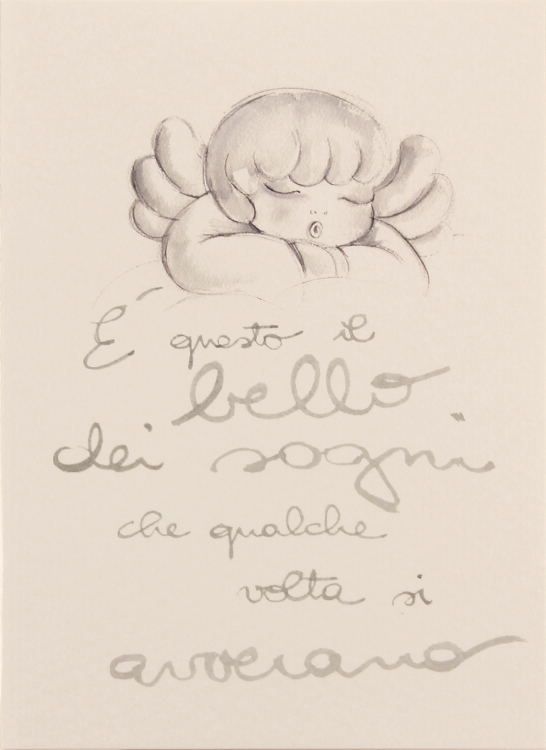 É questo il
bello
dei sogni
che qualche
volta si
avverano